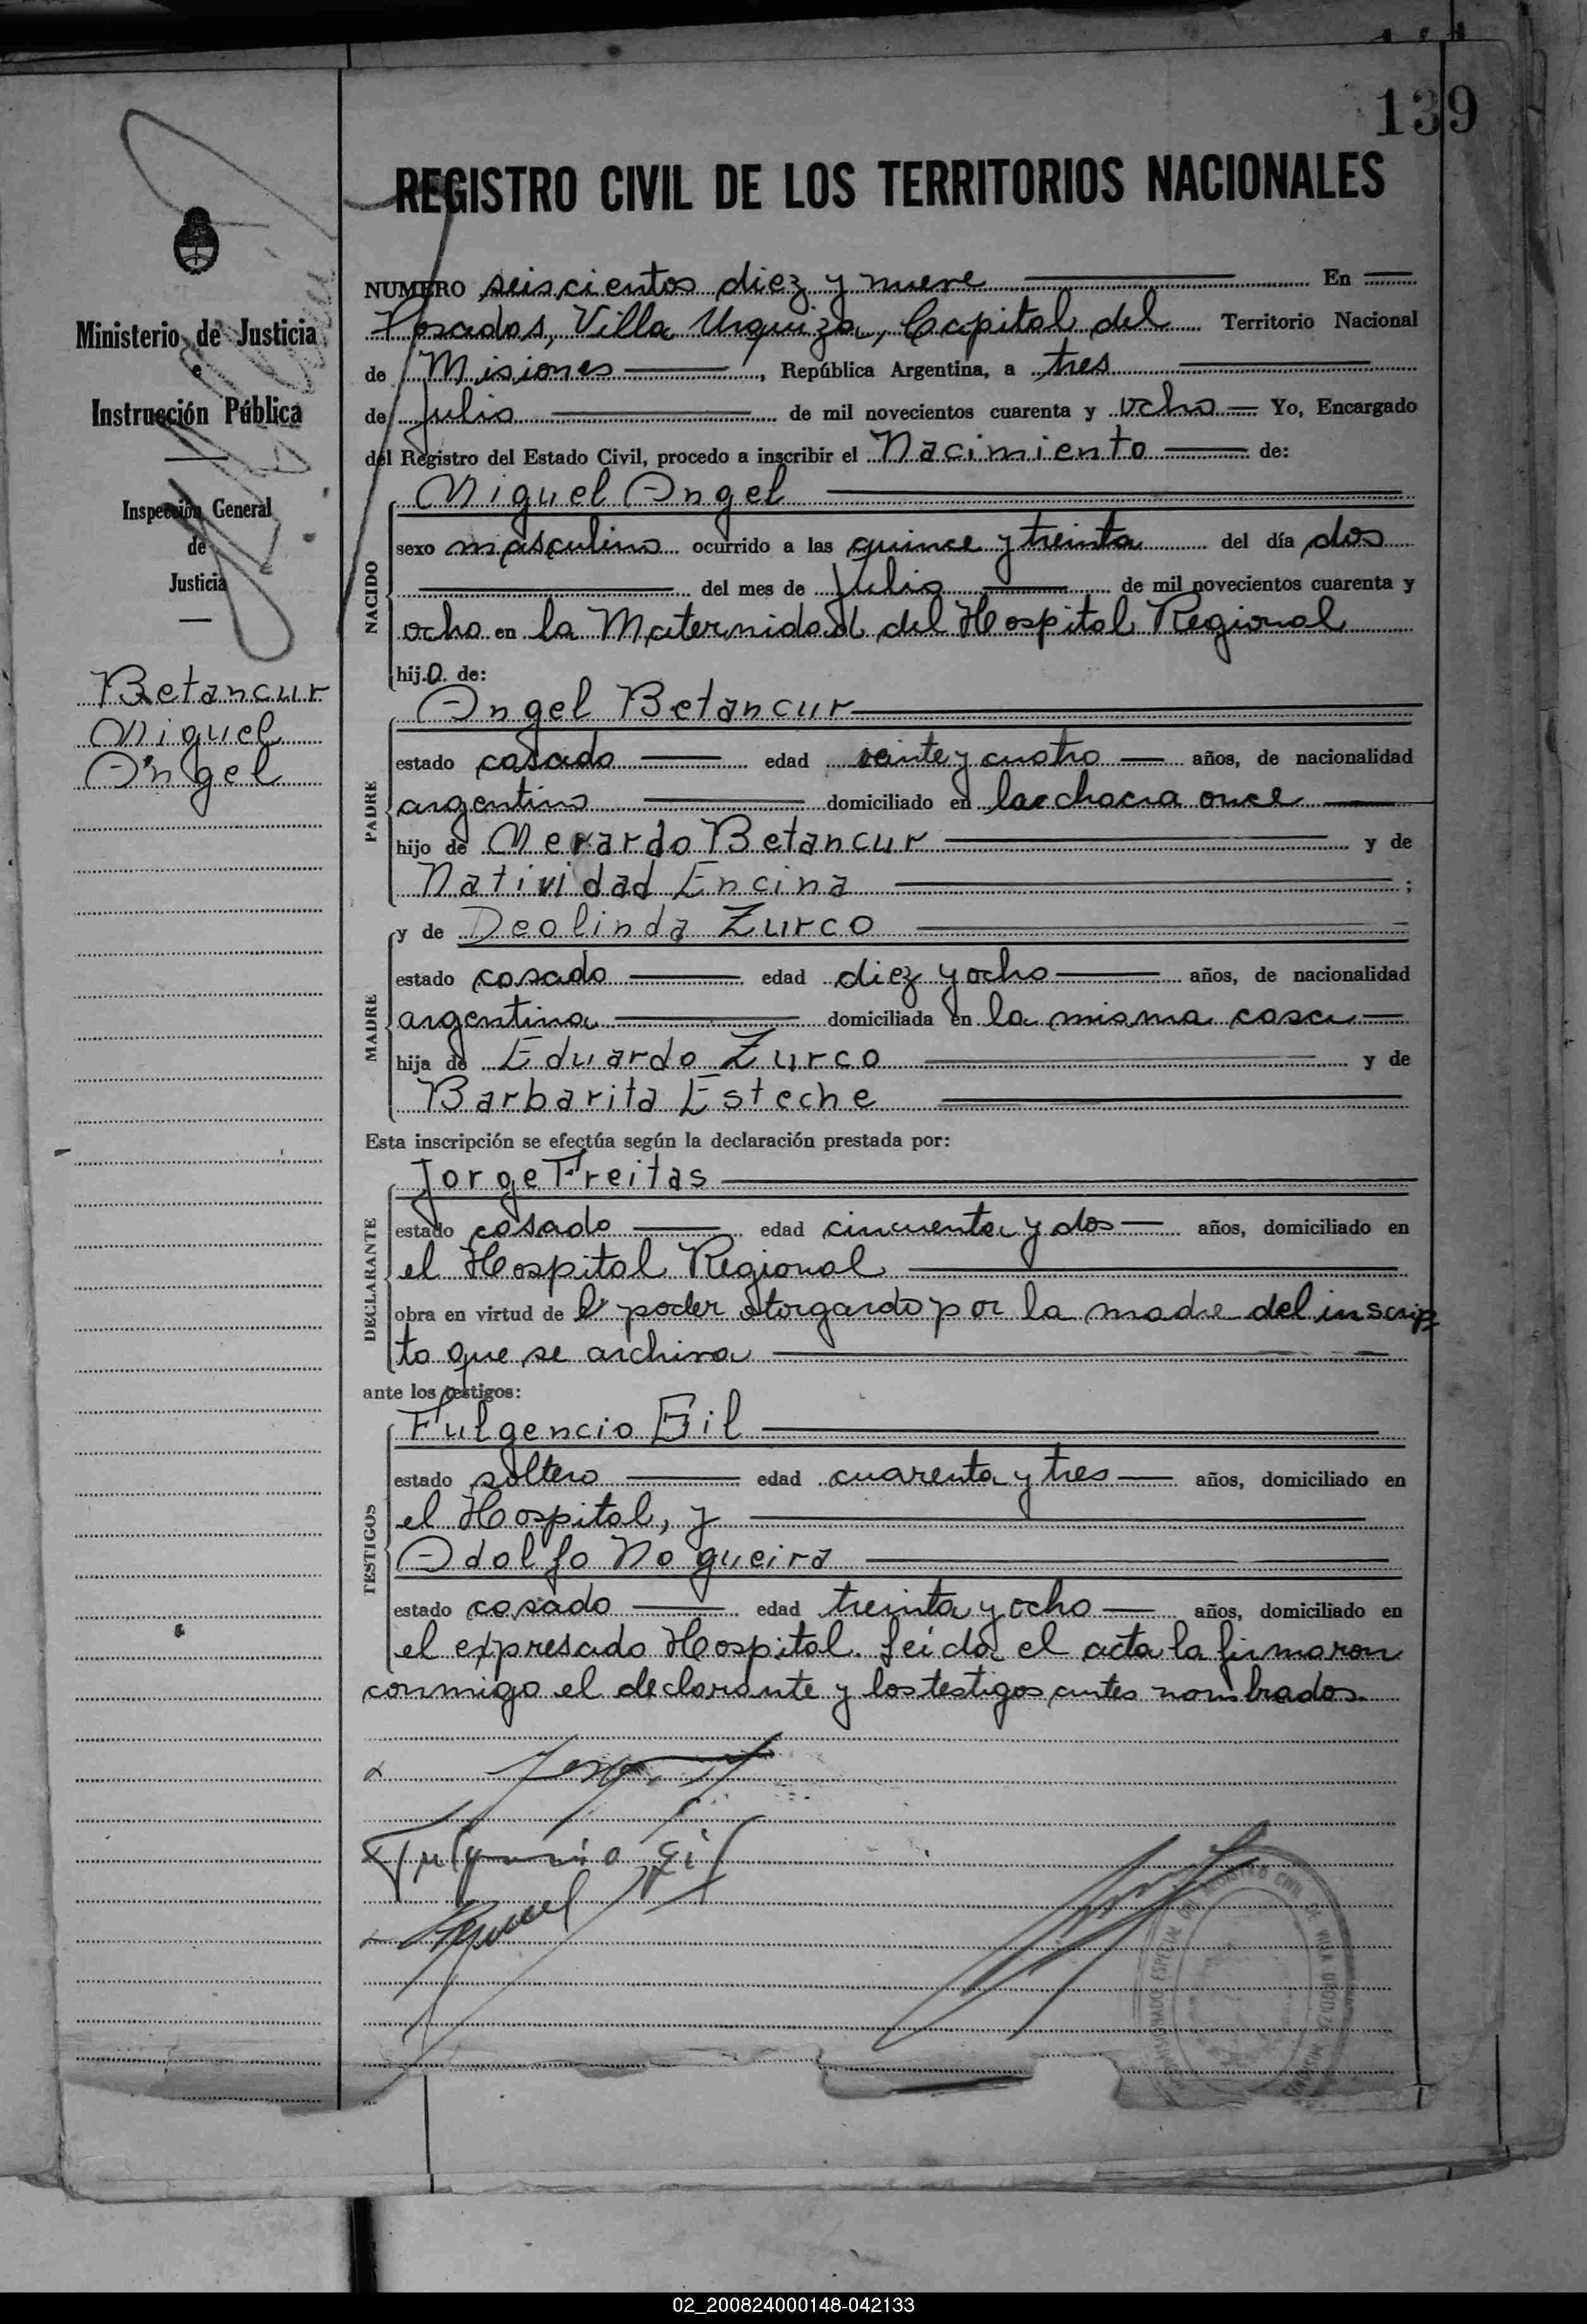 139
REGISTRO CIVIL DE LOS TERRITORIOS NACIONALES
Ministerio de Justicia
e
Instrucción Pública
Inspección General
de
Justicia
Betancur
Miguel
Angel
NUMERO seiscientos diez y nueve En
Posadas, Villa Urquiza, Capital del Territorio Nacional
de Misiones, República Argentina, a tres
de Julio de mil novecientos cuarenta y ocho Yo, Encargado
del Registro del Estado Civil, procedo a inscribir el Nacimiento de:
NACIDO
Miguel Angel
sexo masculino ocurrido a las quince y treinta del día dos
del mes de Julio de mil novecientos cuarenta y
ocho en la Maternidad del Hospital Regional
hijo de:
PADRE
Angel Betancur
estado casado edad veinte y cuatro años, de nacionalidad
argentino domiciliado en la chacra once
hijo de Merardo Betancur y de
Natividad Encina ;
MADRE
y de Deolinda Zurco
estado casado edad diez y ocho años, de nacionalidad
argentina domiciliada en la misma casa
hija de Eduardo Zurco y de
Barbarita Esteche
Esta inscripción se efectúa según la declaración prestada por:
DECLARANTE
Jorge Freitas
estado casado edad cincuenta y dos años, domiciliado en
el Hospital Regional
obra en virtud de poder otorgardo por la madre del inscrip
to que se archiva
ante los testigos:
TESTIGOS
Fulgencio Gil
estado soltero edad cuarenta y tres años, domiciliado en
el Hospital, y
Adolfo Nogueira
estado casado edad treinta y ocho años, domiciliado en
el expresado Hospital. Leída el acta la firmaron
conmigo el declarante y los testigos antes nombrados.
Fulgencio Gil
REGISTRO CIVIL DE VILLA URQUIZA MISIONES
02_200824000148-042133